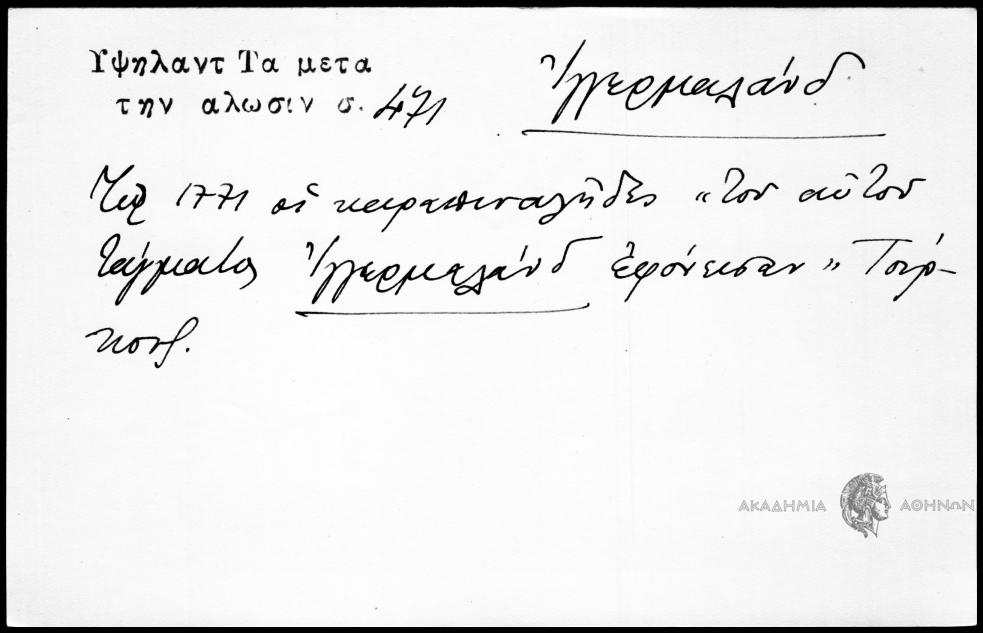 Υψηλαντ Τα μετα
την αλωσιν σ. 471
Ἰγγερμαλάνδ
Τῷ 1771 οἱ καραπιναλῆδες «τοῦ αὐτοῦ
τάγματος Ἰγγερμαλάνδ ἐφόνευσαν» Τούρ-
κους.
ΑΚΑΔΗΜΙΑ ΑΘΗΝΩΝ